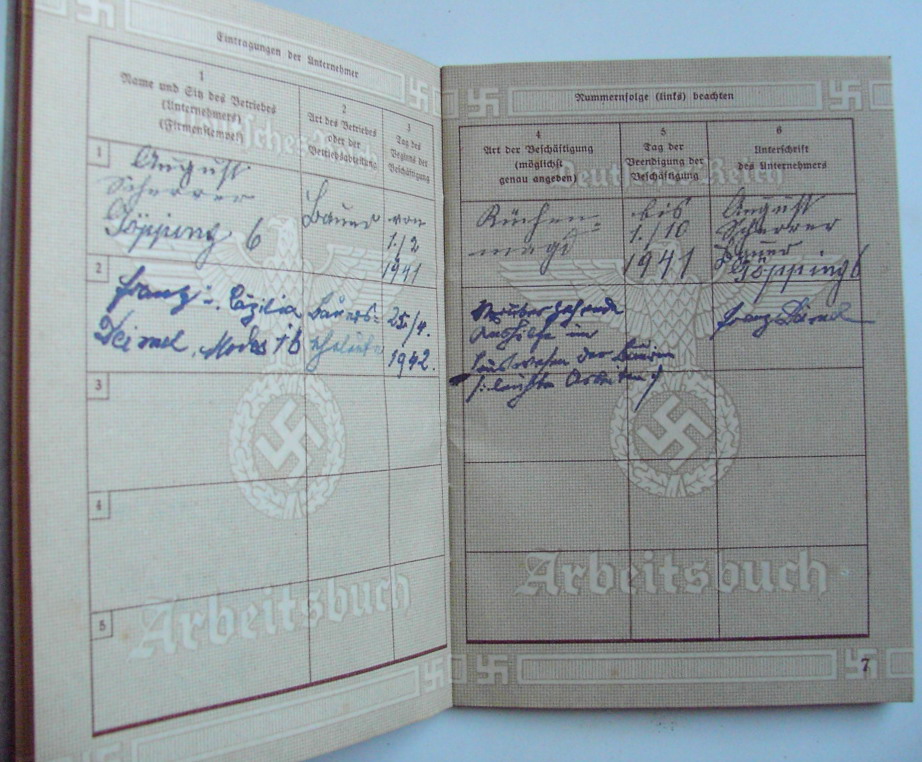 Eintragungen der Unternehmer
1
Name und Sitz des Betriebes
(Unternehmers)
(Firmenstempel)
2
Art des Betriebes
oder der
Betriebsabteilung
3
Tag des
Beginns der
Beschäftigung
Deutsches Reich
1
August
Scherrer
Göpping 6
Bauer
von
1./2
1941
2
Franz u. Cäzilia
Modes 16
Bauers-
eheleute
25./4.
1942.
3
4
5
Arbeitsbuch
Nummernfolge (links) beachten
4
Art der Beschäftigung
(möglichst
genau angeben)
5
Tag der
Beendigung der
Beschäftigung
6
Unterschrift
des Unternehmers
Deutsches Reich
Küchen-
magd
bis
1./10
1941
August
Scherrer
Bauer
Göpping 6
Vorübergehende
Aushilfe im
Hauswesen der Bäuerin
/: leichte Arbeiten :/
Franz
Arbeitsbuch
7